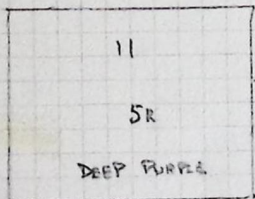 11
5R
DEEP PURPLE